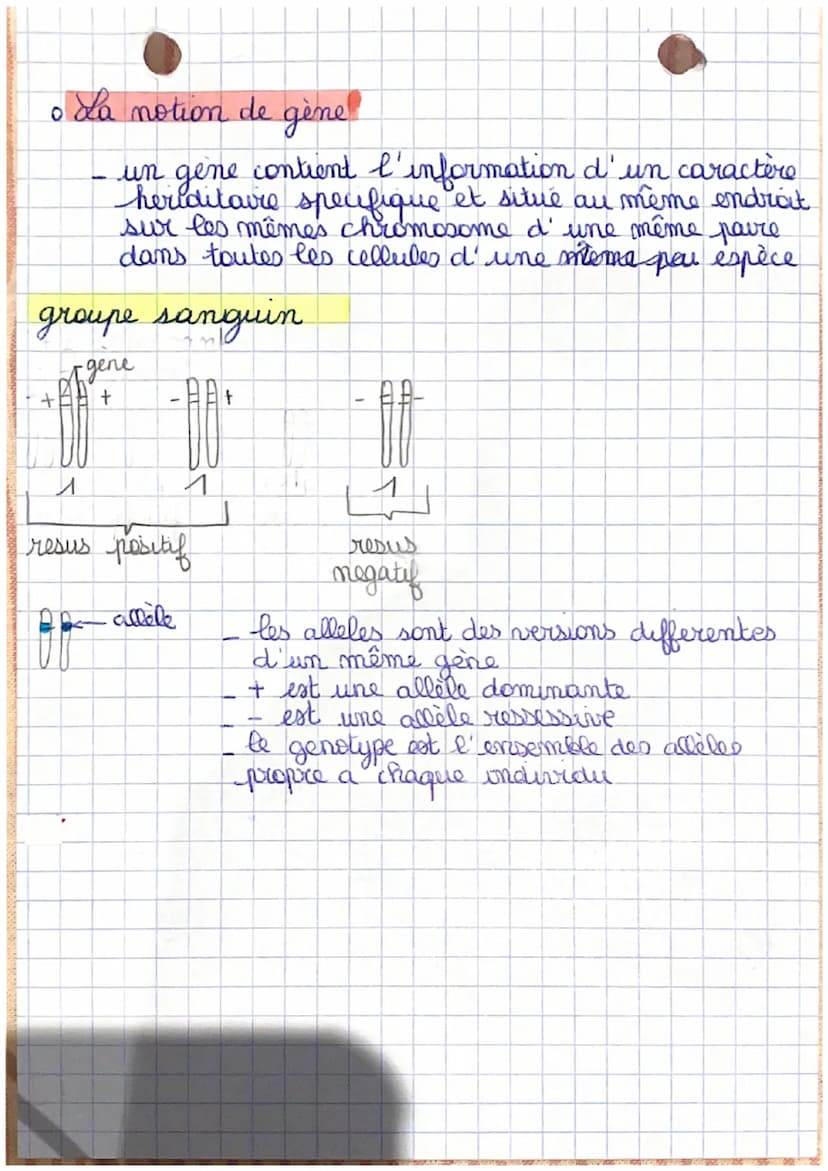 La notion de gène
- un gène contient l'information d'un caractère
heriditaire specifique et situé au même endroit
sur les mêmes chromosome d'une même paire
dans toutes les cellules d'une espèce
groupe sanguin
gène
+ + - + - -
1 1 1
resus positif
resus
negatif
allèle
- les alleles sont des versions differentes
d'un même gène
- + est une allèle dominante
- - est une allèle ressessive
- le genotype est l'ensemble des allèles
propre a chaque individu